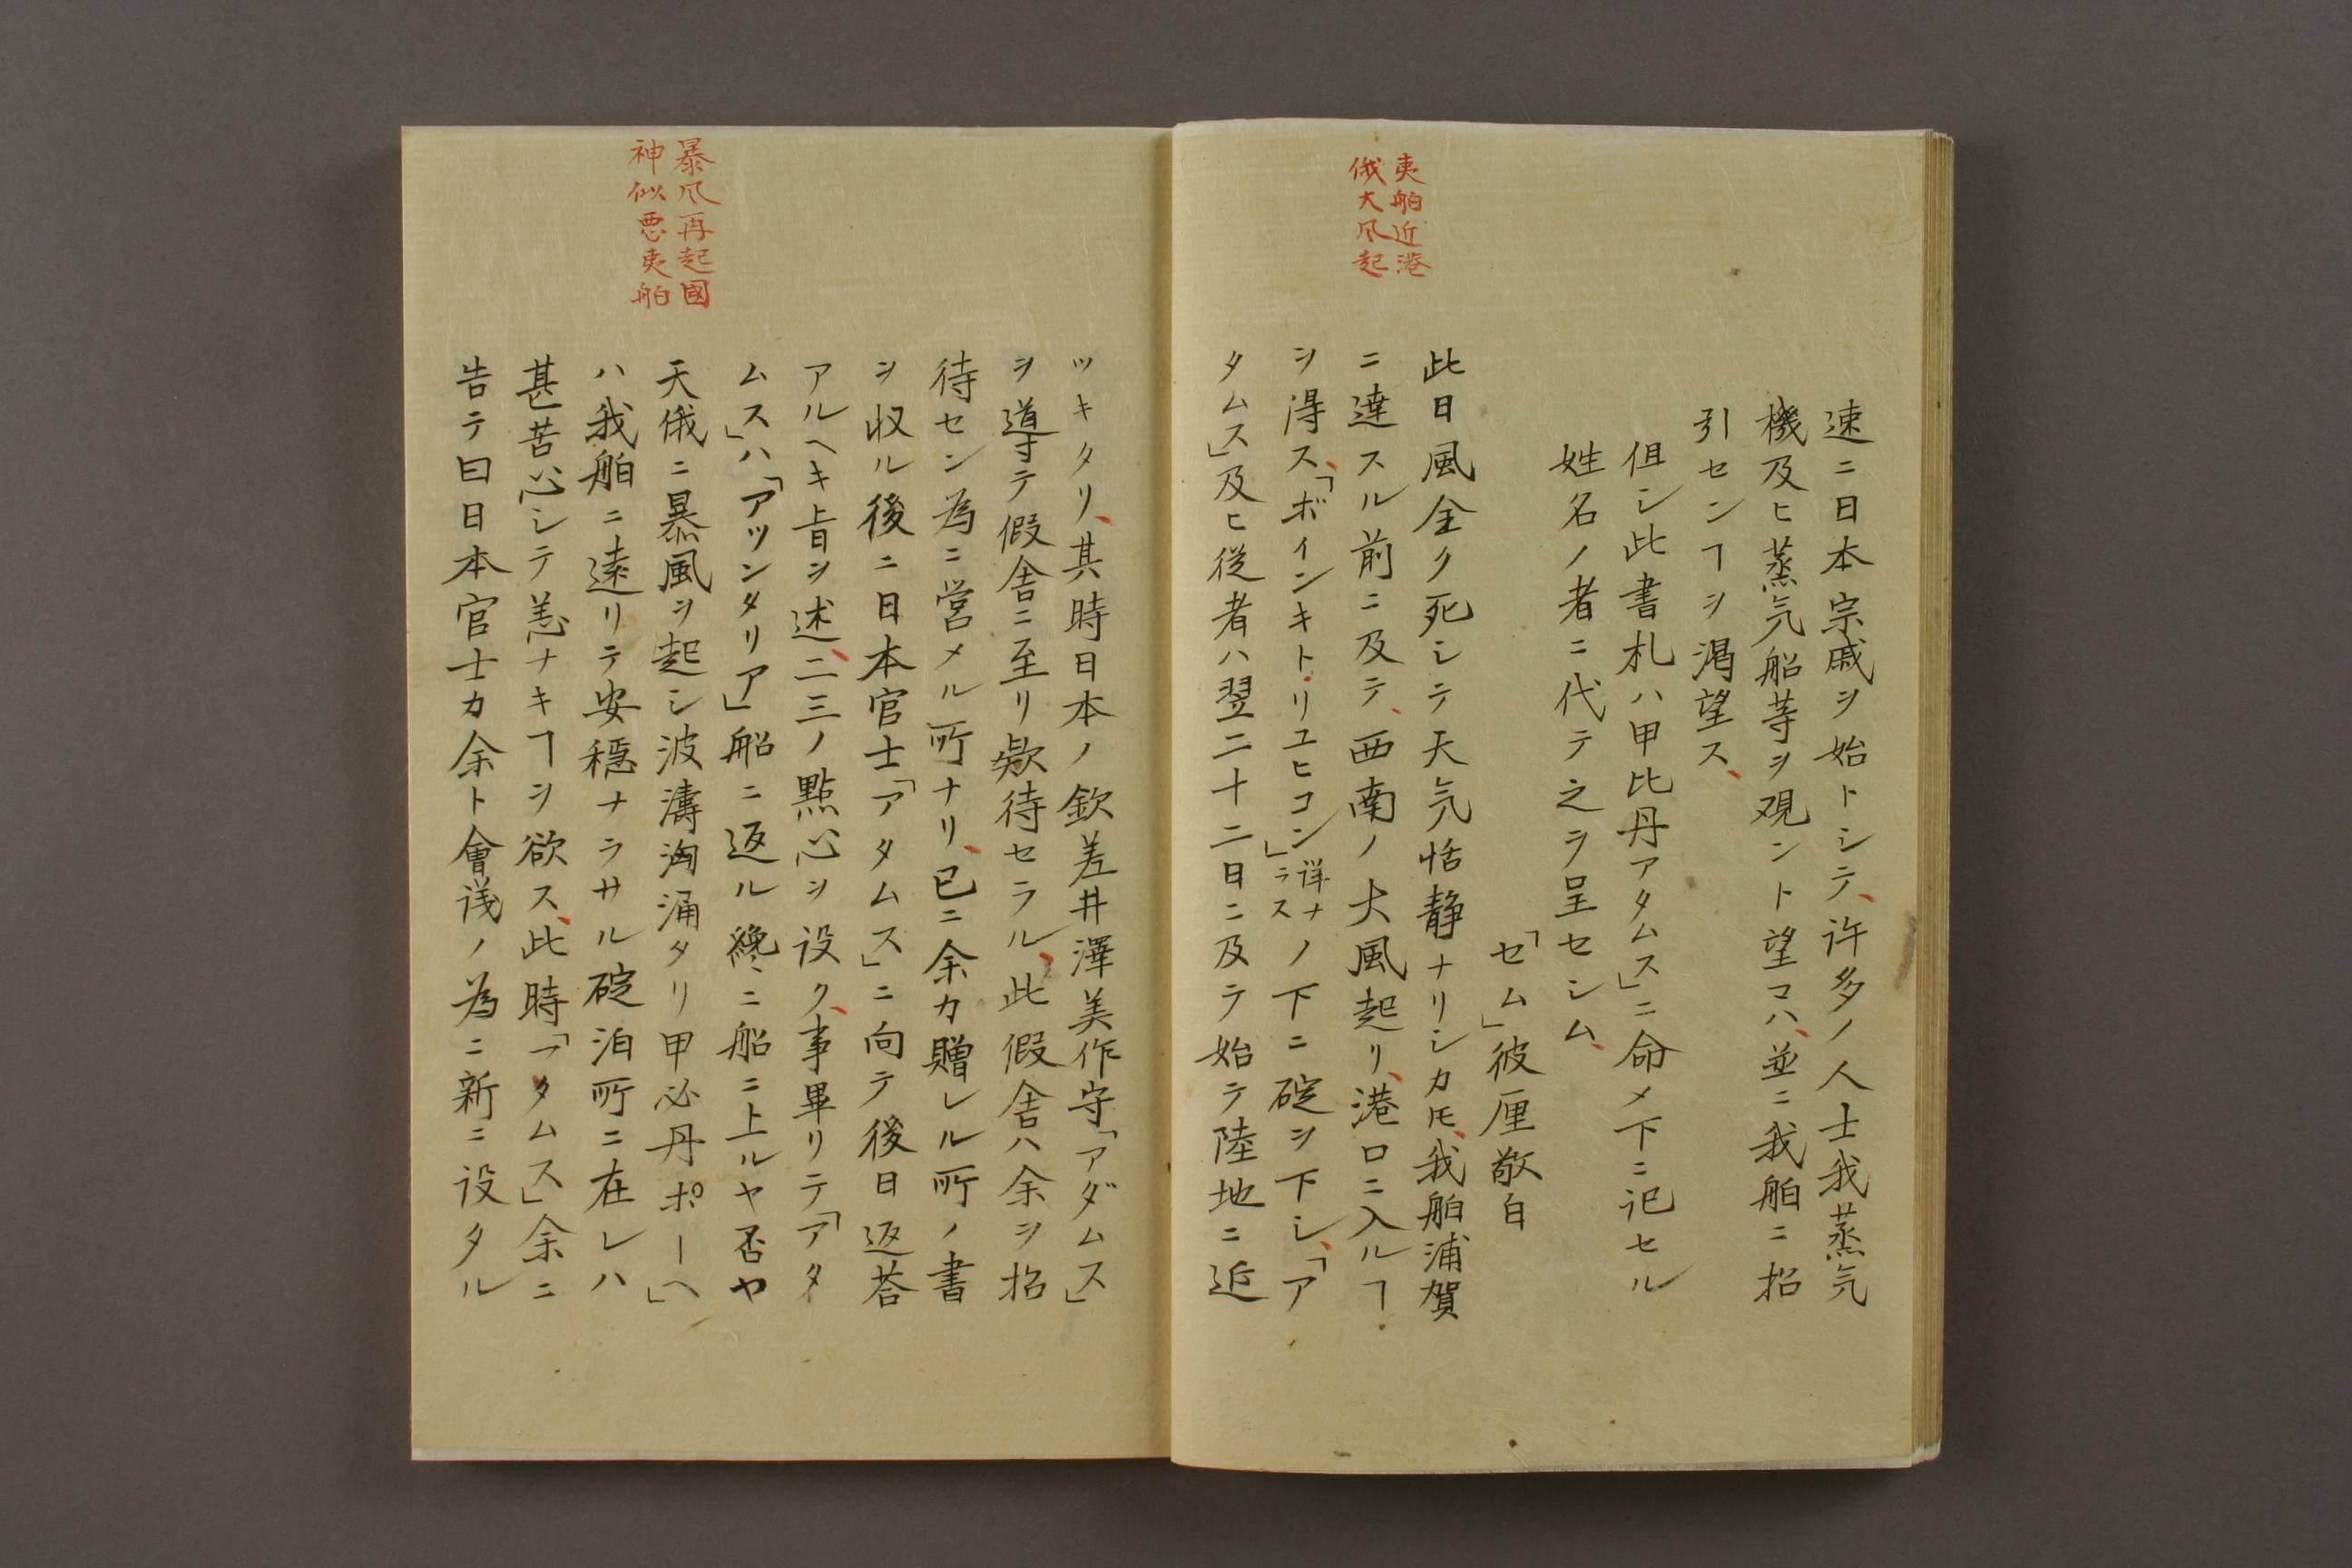 夷舶近港
俄大風起
速ニ日本宗戚ヲ始トシテ、許多ノ人士我蒸気
機及ヒ蒸気船等ヲ観ント望マハ、並ニ我舶ニ招
引センヿヲ渇望ス、
但シ此書札ハ甲比丹アタムス」ニ命メ下ニ記セル
姓名ノ者ニ代テ之ヲ呈セシム、
「セム」彼厘敬白
此日風全ク死シテ天気恬静ナリシカ𪜈、我舶浦賀
ニ達スル前ニ及テ、西南ノ大風起リ、港口ニ入ルヿ
ヲ得ス、「ボインキト・リユヒコン」詳ナラスノ下ニ碇ヲ下シ、「ア
タムス」及ヒ従者ハ翌二十二日ニ及テ始テ陸地ニ近
暴風再起國
神似悪夷舶
ツキタリ、其時日本ノ欽差井澤美作守「アダムス」
ヲ導テ假舎ニ至リ欵待セラル、此假舎ハ余ヲ招
待セン為ニ営メル所ナリ、已ニ余カ贈レル所ノ書
ヲ収ル後ニ日本官士「アタムス」ニ向テ後日返荅
アルヘキ旨ヲ述、二三ノ點心ヲ設ク、事畢リテ「アタ
ムス」ハ「アツンタリア」船ニ返ル纔ニ船ニ上ルヤ否ヤ
天俄ニ暴風ヲ起シ波濤洶涌タリ甲必丹ポーヘ」
ハ我舶ニ遠リテ安穏ナラサル碇泊所ニ在レハ
甚苦心シテ恙ナキヿヲ欲ス、此時「アタムス」余ニ
告テ曰日本官士カ余ト會議ノ為ニ新ニ設タル